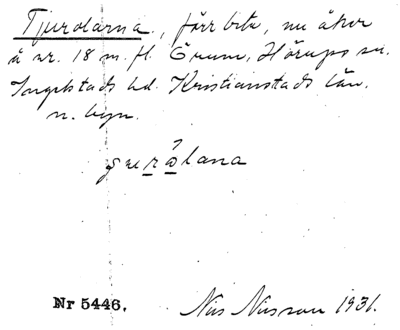 Tjurolarna, förr bete, nu åker
å nr. 18 m. fl. Örum, Hörups sn.
Ingelstads hd. Kristianstads län.
n. byn.
Nr 5446. Nils Nilsson 1931.